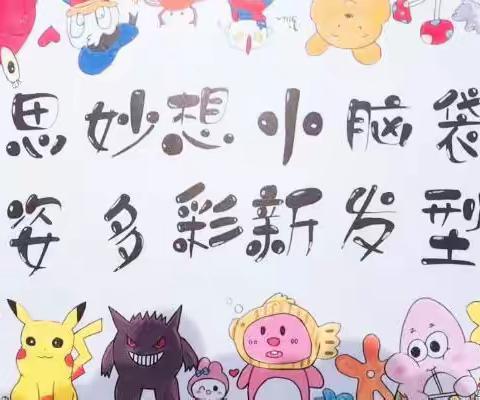 思妙想小脑袋
姿多彩新发型